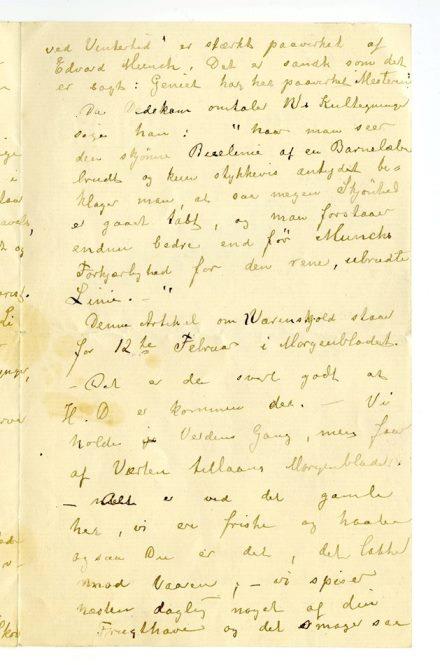 ved Vintertid" er stærkt paavirket af
Edvard Munch. Det er sandt som det
er sagt: Geniet har her paavirket Mesteren
Da Dedekam omtaler Ws Kultegninger
siger han: "naar man seer
den skjønne Biselinie af en Barnelæbe
brudt og kun stykkevis antydet be-
klager man, at saa megen Skjønhed
er gaaet tabt, og man forstaar
endnu bedre end før Munchs
Forkjærlighed for den rene, ubrudte
Linie. - "
Denne Artikel om Warenskjold staar
for 12te Februar i Morgenbladet.
- Det er da svært godt at
H. D er kommen der. - Vi
holder jo Verdens Gang, men faar
af Værten tillaans Morgenbladet.
- Alt er ved det gamle
her, vi ere friske og haaber
ogsaa Du er det, det lakker
mod Vaaren, - vi spiser
næsten daglig noget af din
Frugthave og det smager saa